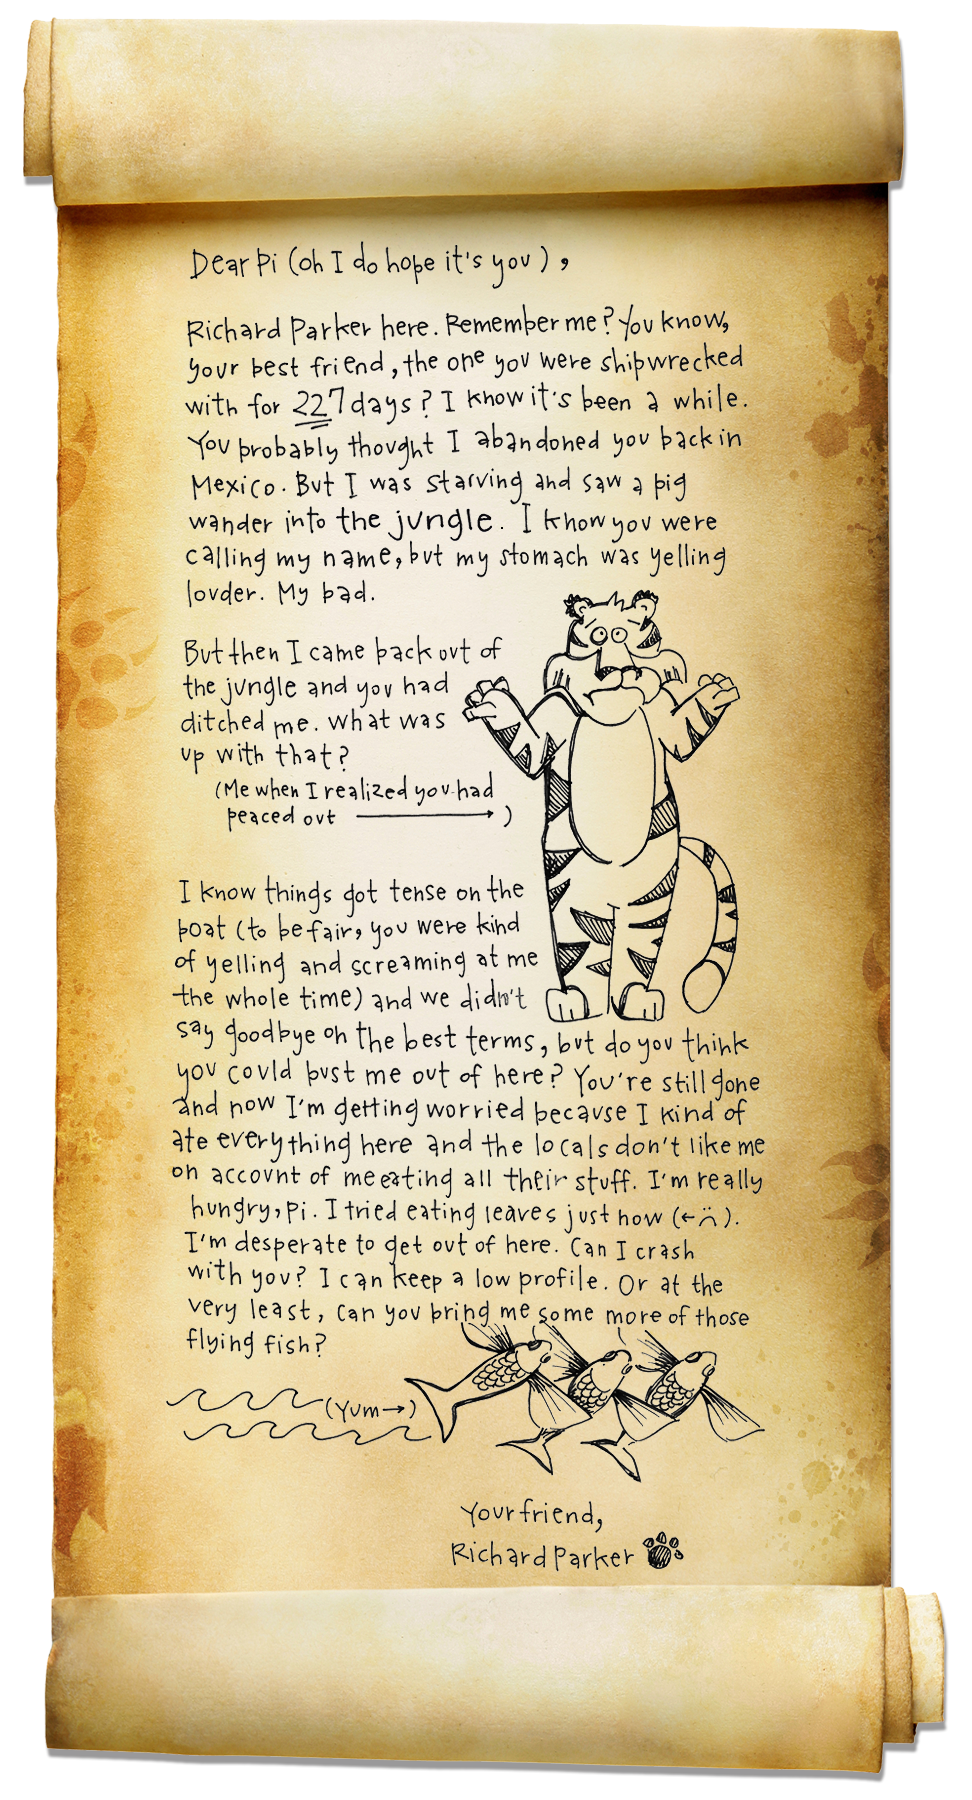 Dear Pi (oh I do hope it's you),
Richard Parker here. Remember me? You know,
your best friend, the one you were shipwrecked
with for 227 days? I know it's been a while.
You probably thought I abandoned you back in
Mexico. But I was starving and saw a pig
wander into the jungle. I know you were
calling my name, but my stomach was yelling
louder. My bad.
But then I came back out of
the jungle and you had
ditched me. What was
up with that?
(Me when I realized you had
peaced out → )
I know things got tense on the
boat (to be fair, you were kind
of yelling and screaming at me
the whole time) and we didn't
say goodbye on the best terms, but do you think
you could bust me out of here? You're still gone
and now I'm getting worried because I kind of
ate everything here and the locals don't like me
on account of me eating all their stuff. I'm really
hungry, Pi. I tried eating leaves just now (← ).
I'm desperate to get out of here. Can I crash
with you? I can keep a low profile. Or at the
very least, can you bring me some more of those
flying fish?
(Yum→)
Your friend,
Richard Parker